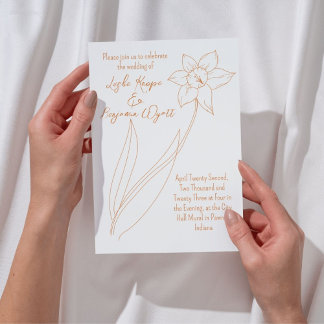 Please join us to celebrate
the wedding of
Leslie Knope
&
Benjamin Wyatt
April Twenty Second,
Two Thousand and
Twenty Three at Four in
the Evening, at the City
Hall Mural in Pawnee
Indiana